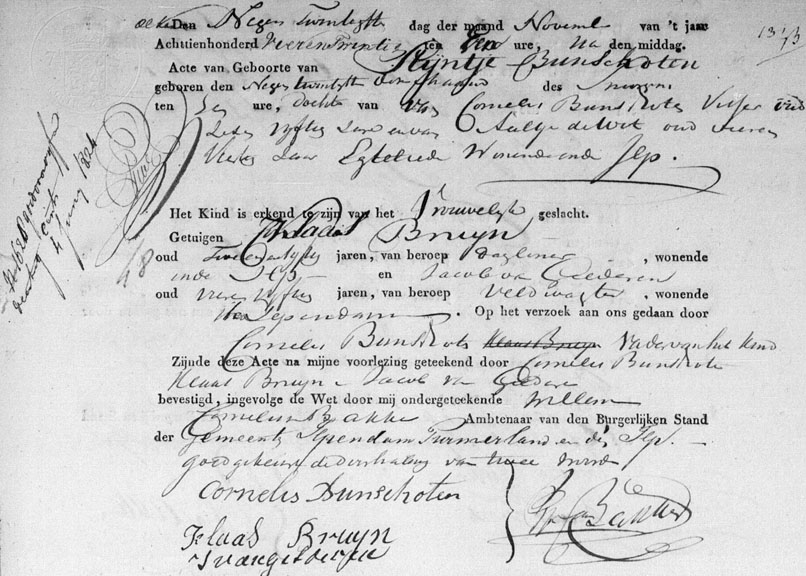 Den Negen Twintigste dag der maand Novemb van 't jaar
Achttienhonderd vierentwintig ten een ure, na den middag.
Acte van Geboorte van Trijntje Bunschoten
geboren den Negentwintigste dezer maand des morgens
ten zes ure, dochter van van Cornelis Bunschoten Visser oud
zeven vijftig Jaar en van Aaltje de Wit oud
Veertig Jaar Egtelieden Wonende onde Ilp.
Het Kind is erkend te zijn van het Vrouwelijk geslacht.
Getuigen Klaas Bruyn
oud jaren, van beroep daglooner, wonende
inde Ilp en Jacob van Gelderen
oud vier vijftig jaren, van beroep Veldwagter, wonende
Ilpendam. Op het verzoek aan ons gedaan door
Cornelis Bunschoten Klaas Bruyn Vader van het Kind
Zijnde deze Acte na mijne voorlezing geteekend door Cornelis Bunschoten
Klaas Bruyn Jacob van Gelderen
bevestigd, ingevolge de Wet door mij ondergeteekende Willem
Cornelis Bakker Ambtenaar van den Burgerlijken Stand
der Gemeente Ilpendam Purmerland en de Ilp.
goedgekeurd de doorhaling van twee woorden
Cornelis Bunschoten
Klaas Bruyn
J van gelderen